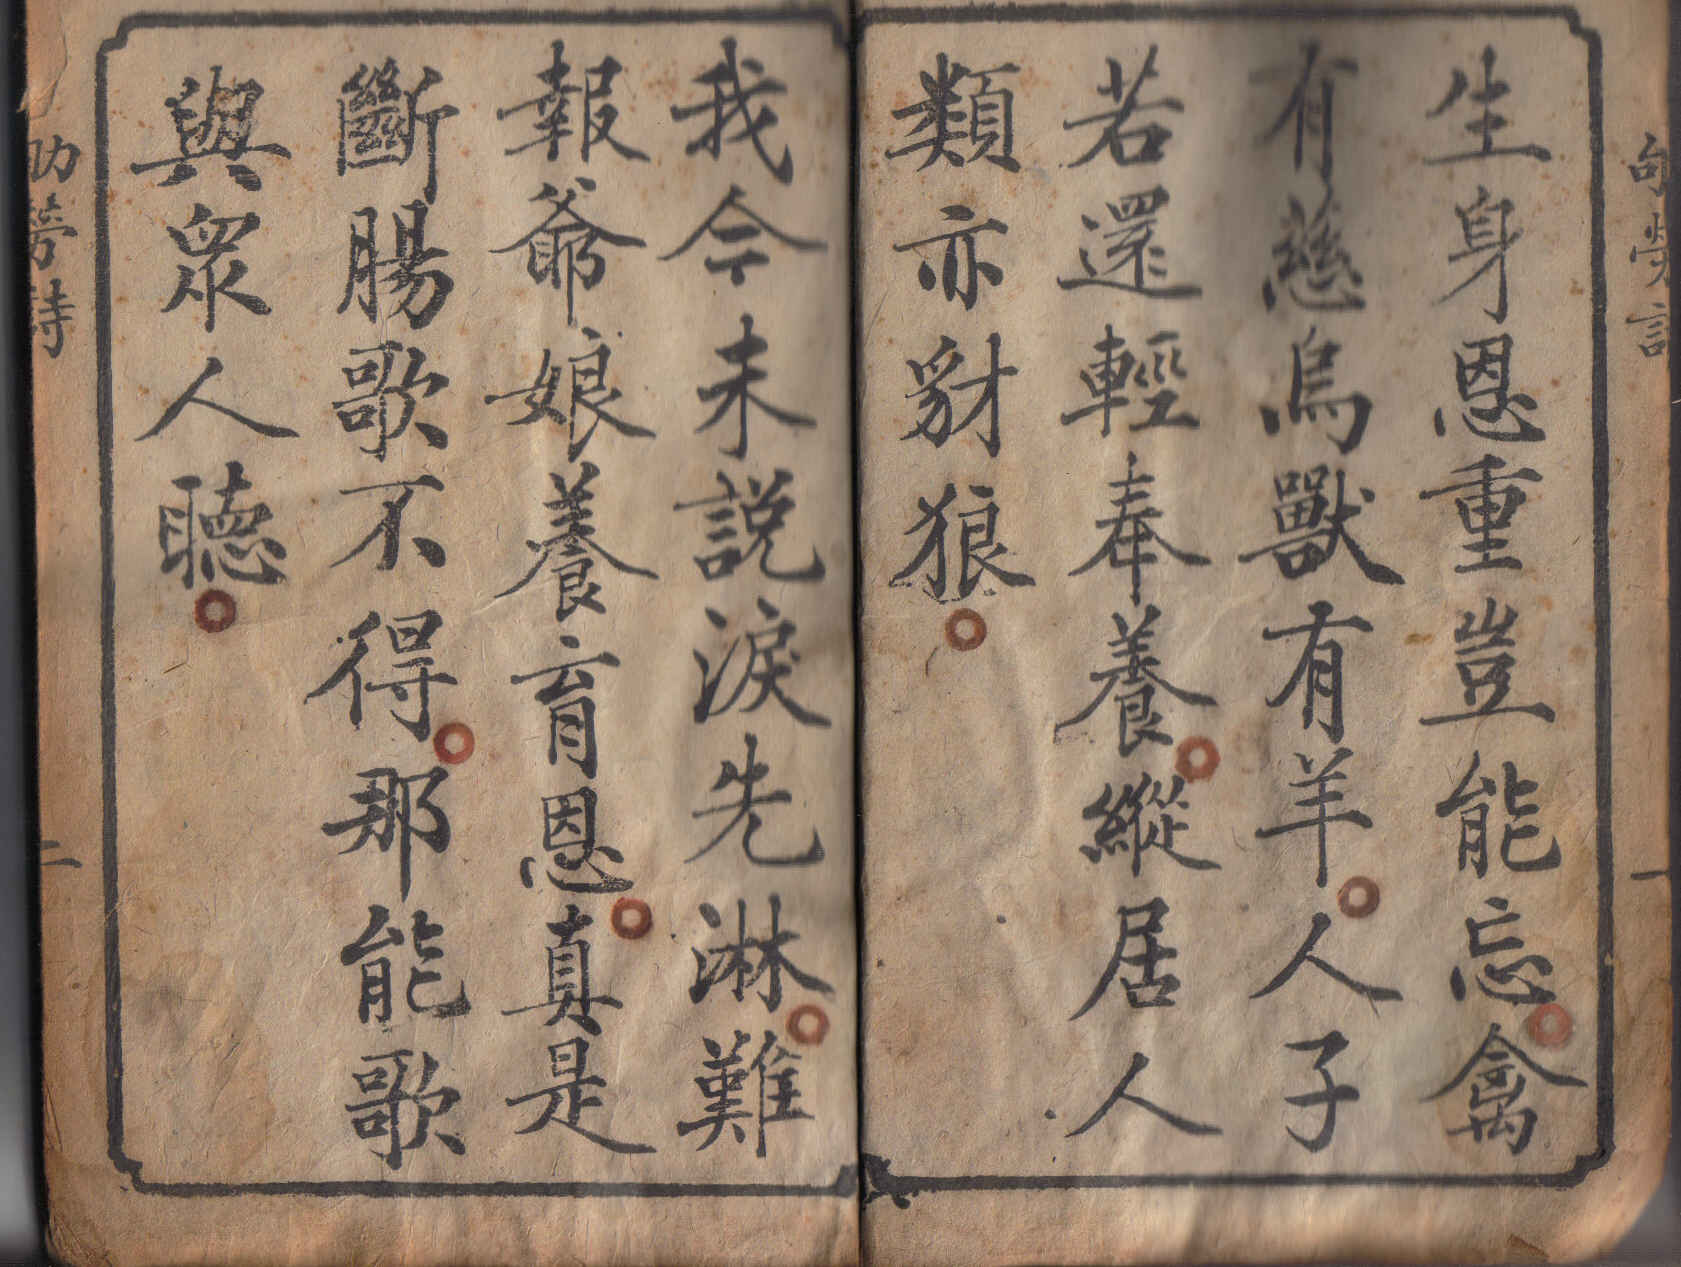 生身恩重豈能忘禽
有慈烏獸有羊人子
若還輕奉養縱居人
類亦豺狼
我今未説淚先淋難
報爺娘養育恩真是
斷腸歌不得那能歌
與眾人聽
劬勞詩
二
一